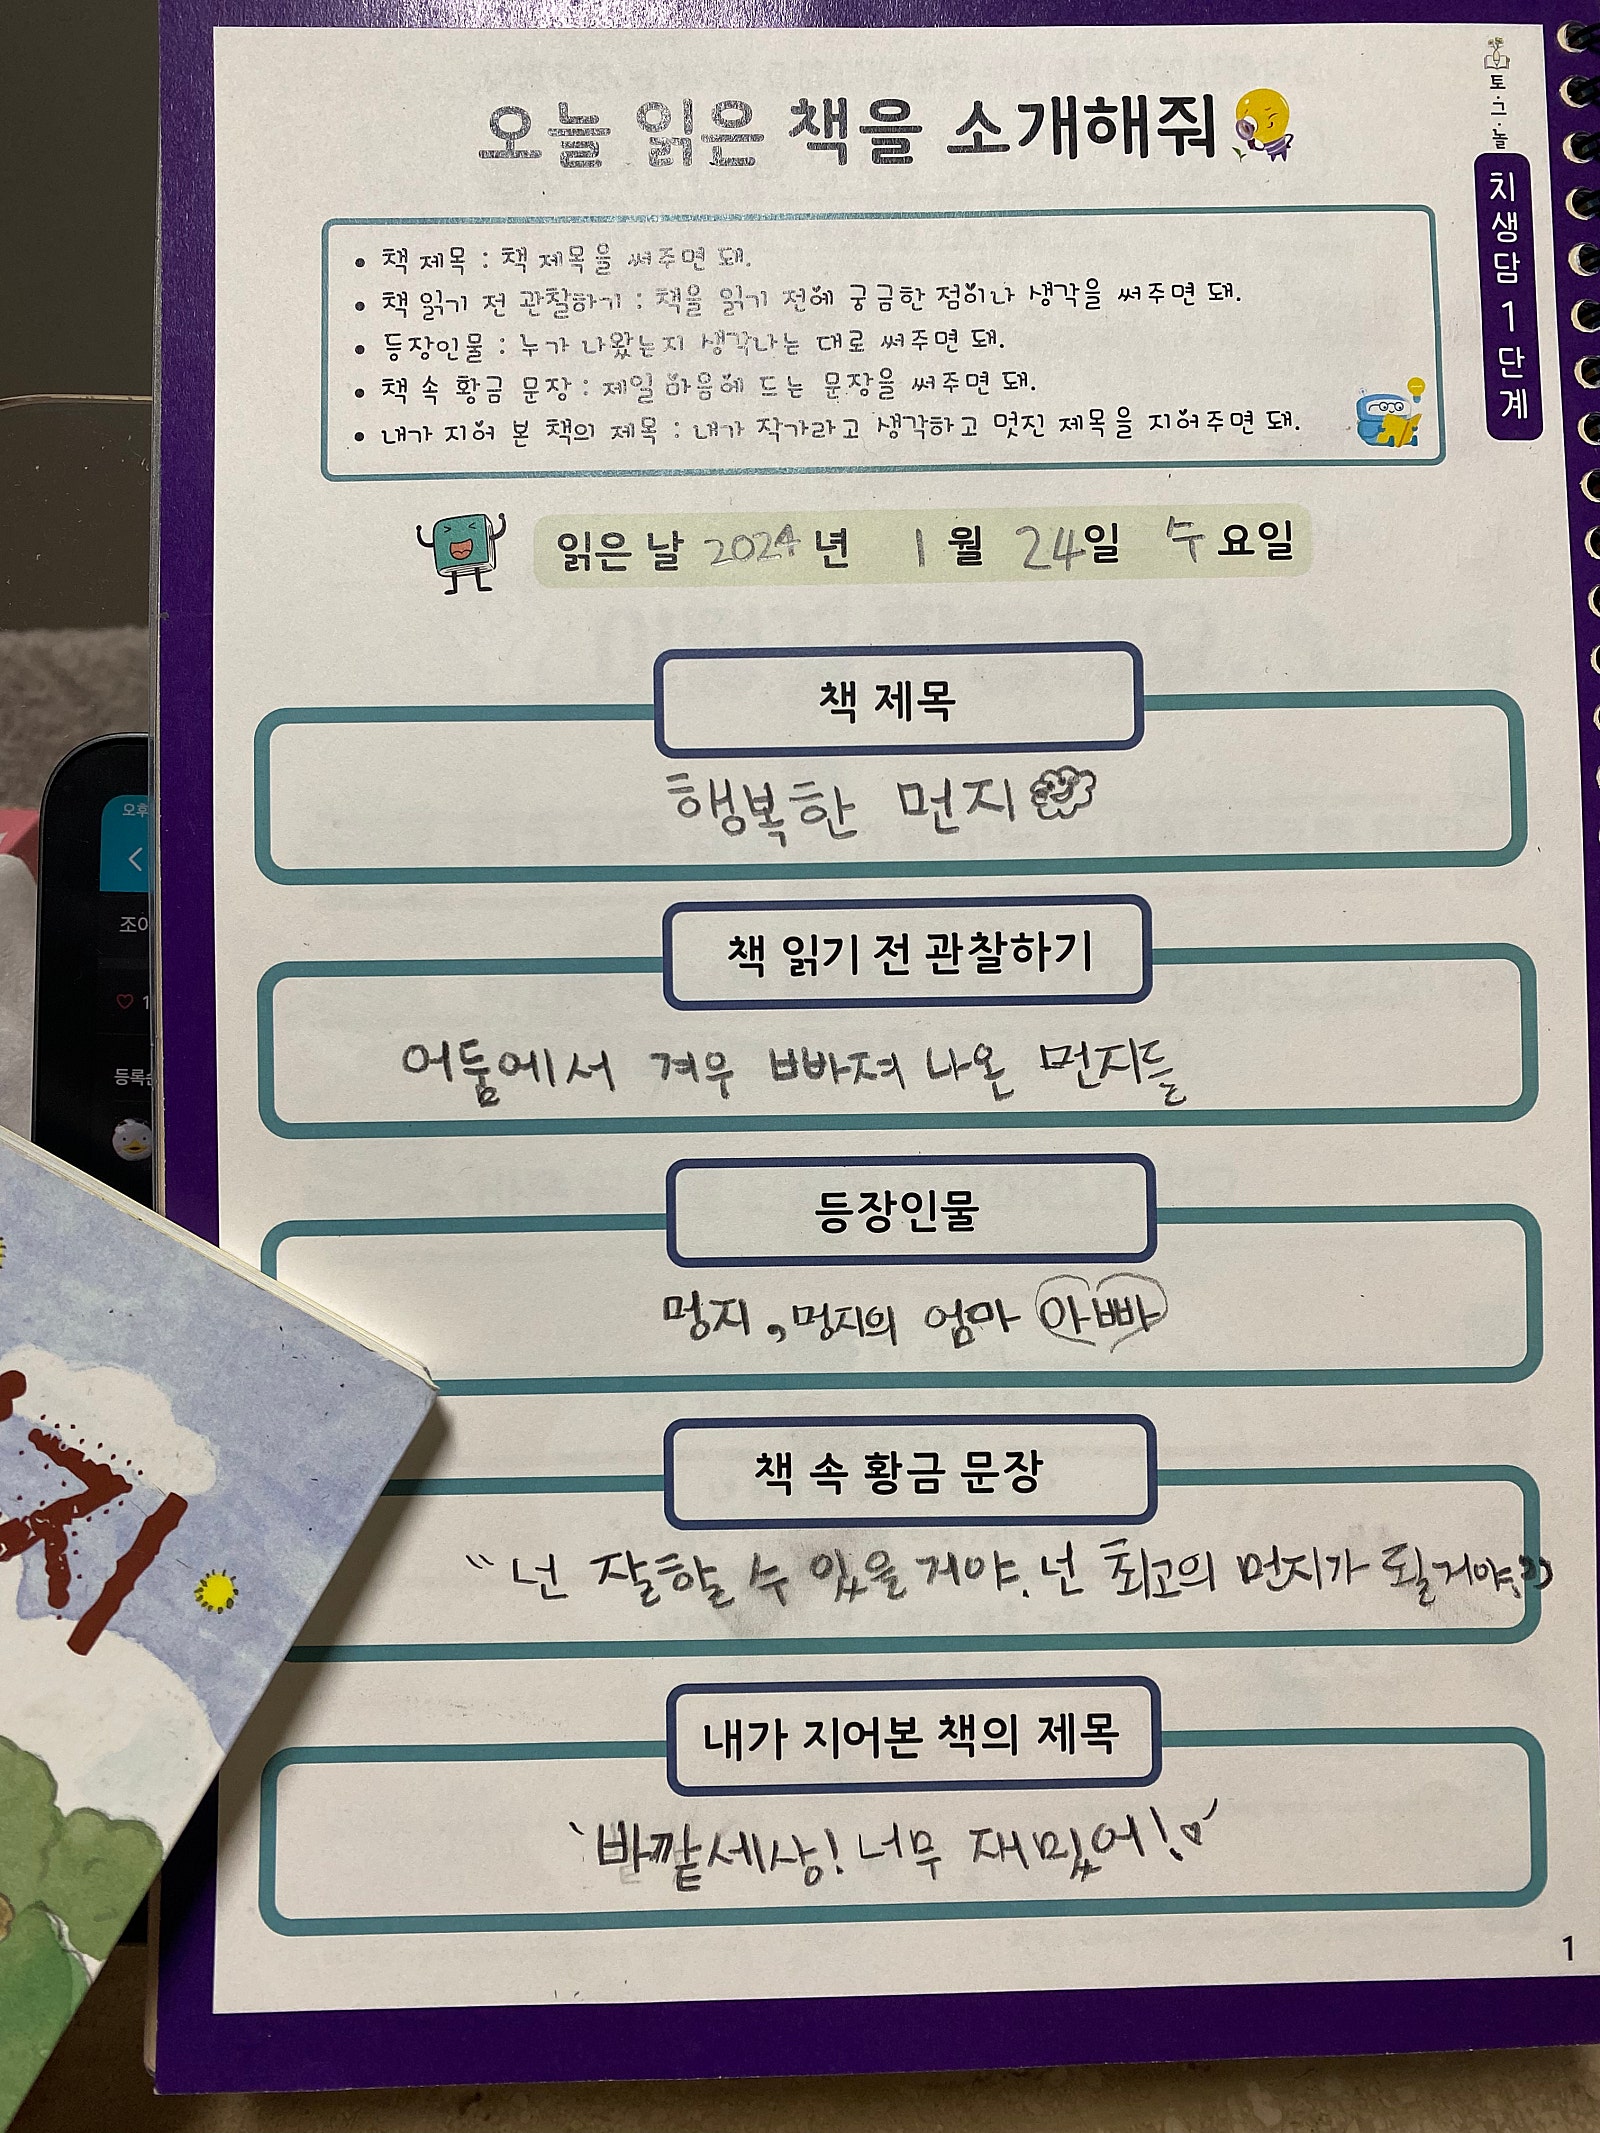 오늘 읽은 책을 소개해줘
토·그·놀
치생담 1단계
• 책 제목 : 책 제목을 써주면 돼.
• 책 읽기 전 관찰하기 : 책을 읽기 전에 궁금한 점이나 생각을 써주면 돼.
• 등장인물 : 누가 나왔는지 생각나는 대로 써주면 돼.
• 책 속 황금 문장 : 제일 마음에 드는 문장을 써주면 돼.
• 내가 지어 본 책의 제목 : 내가 작가라고 생각하고 멋진 제목을 지어주면 돼.
읽은 날 2024년 1월 24일 수요일
책 제목
행복한 먼지
책 읽기 전 관찰하기
어둠에서 겨우 빠져 나온 먼지들
등장인물
멍지, 멍지의 엄마 아빠
책 속 황금 문장
“넌 잘할 수 있을 거야. 넌 최고의 먼지가 될거야.”
내가 지어본 책의 제목
'바깥세상! 너무 재밌어!♡'
1
오후
조이
♡ 1
등록순
지